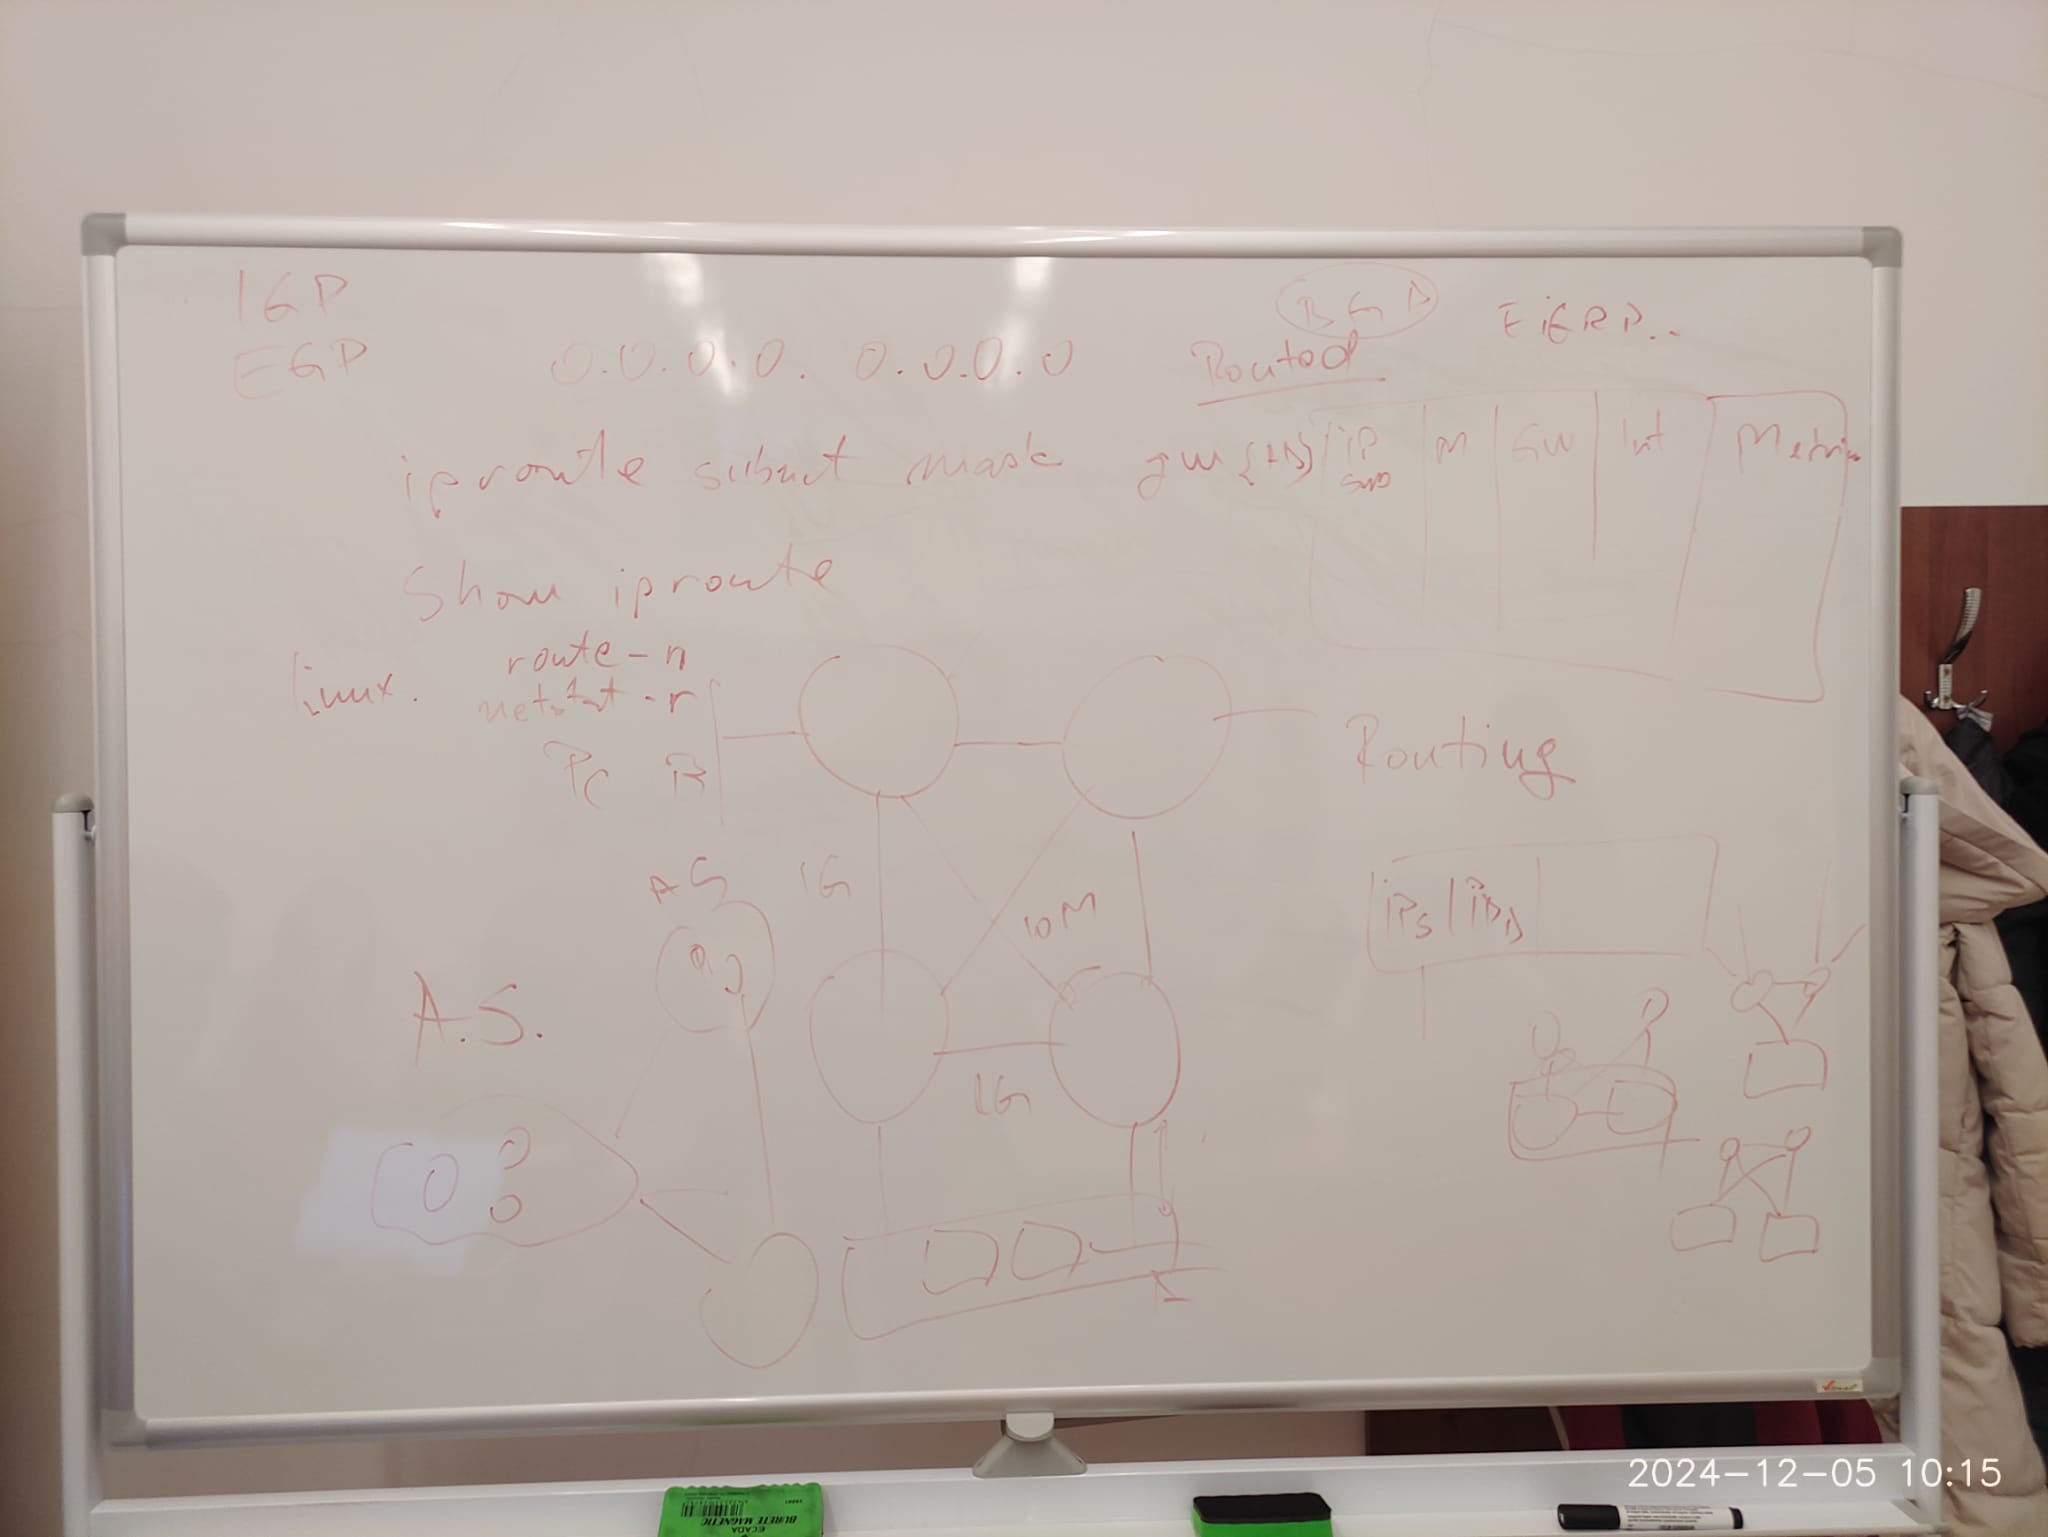 IGP
EGP
0.0.0.0. 0.0.0.0
BGP
EiGRP..
Routed
iproute subnet mask gw {AD}
iP sub M GW Int Metric
Show iproute
linux. route -n
netstat -r
PC R
Routing
AS
1G
10M
iPs iPD
A.S.
1G
BURETE MAGNETIC
ECADA
2024-12-05 10:15